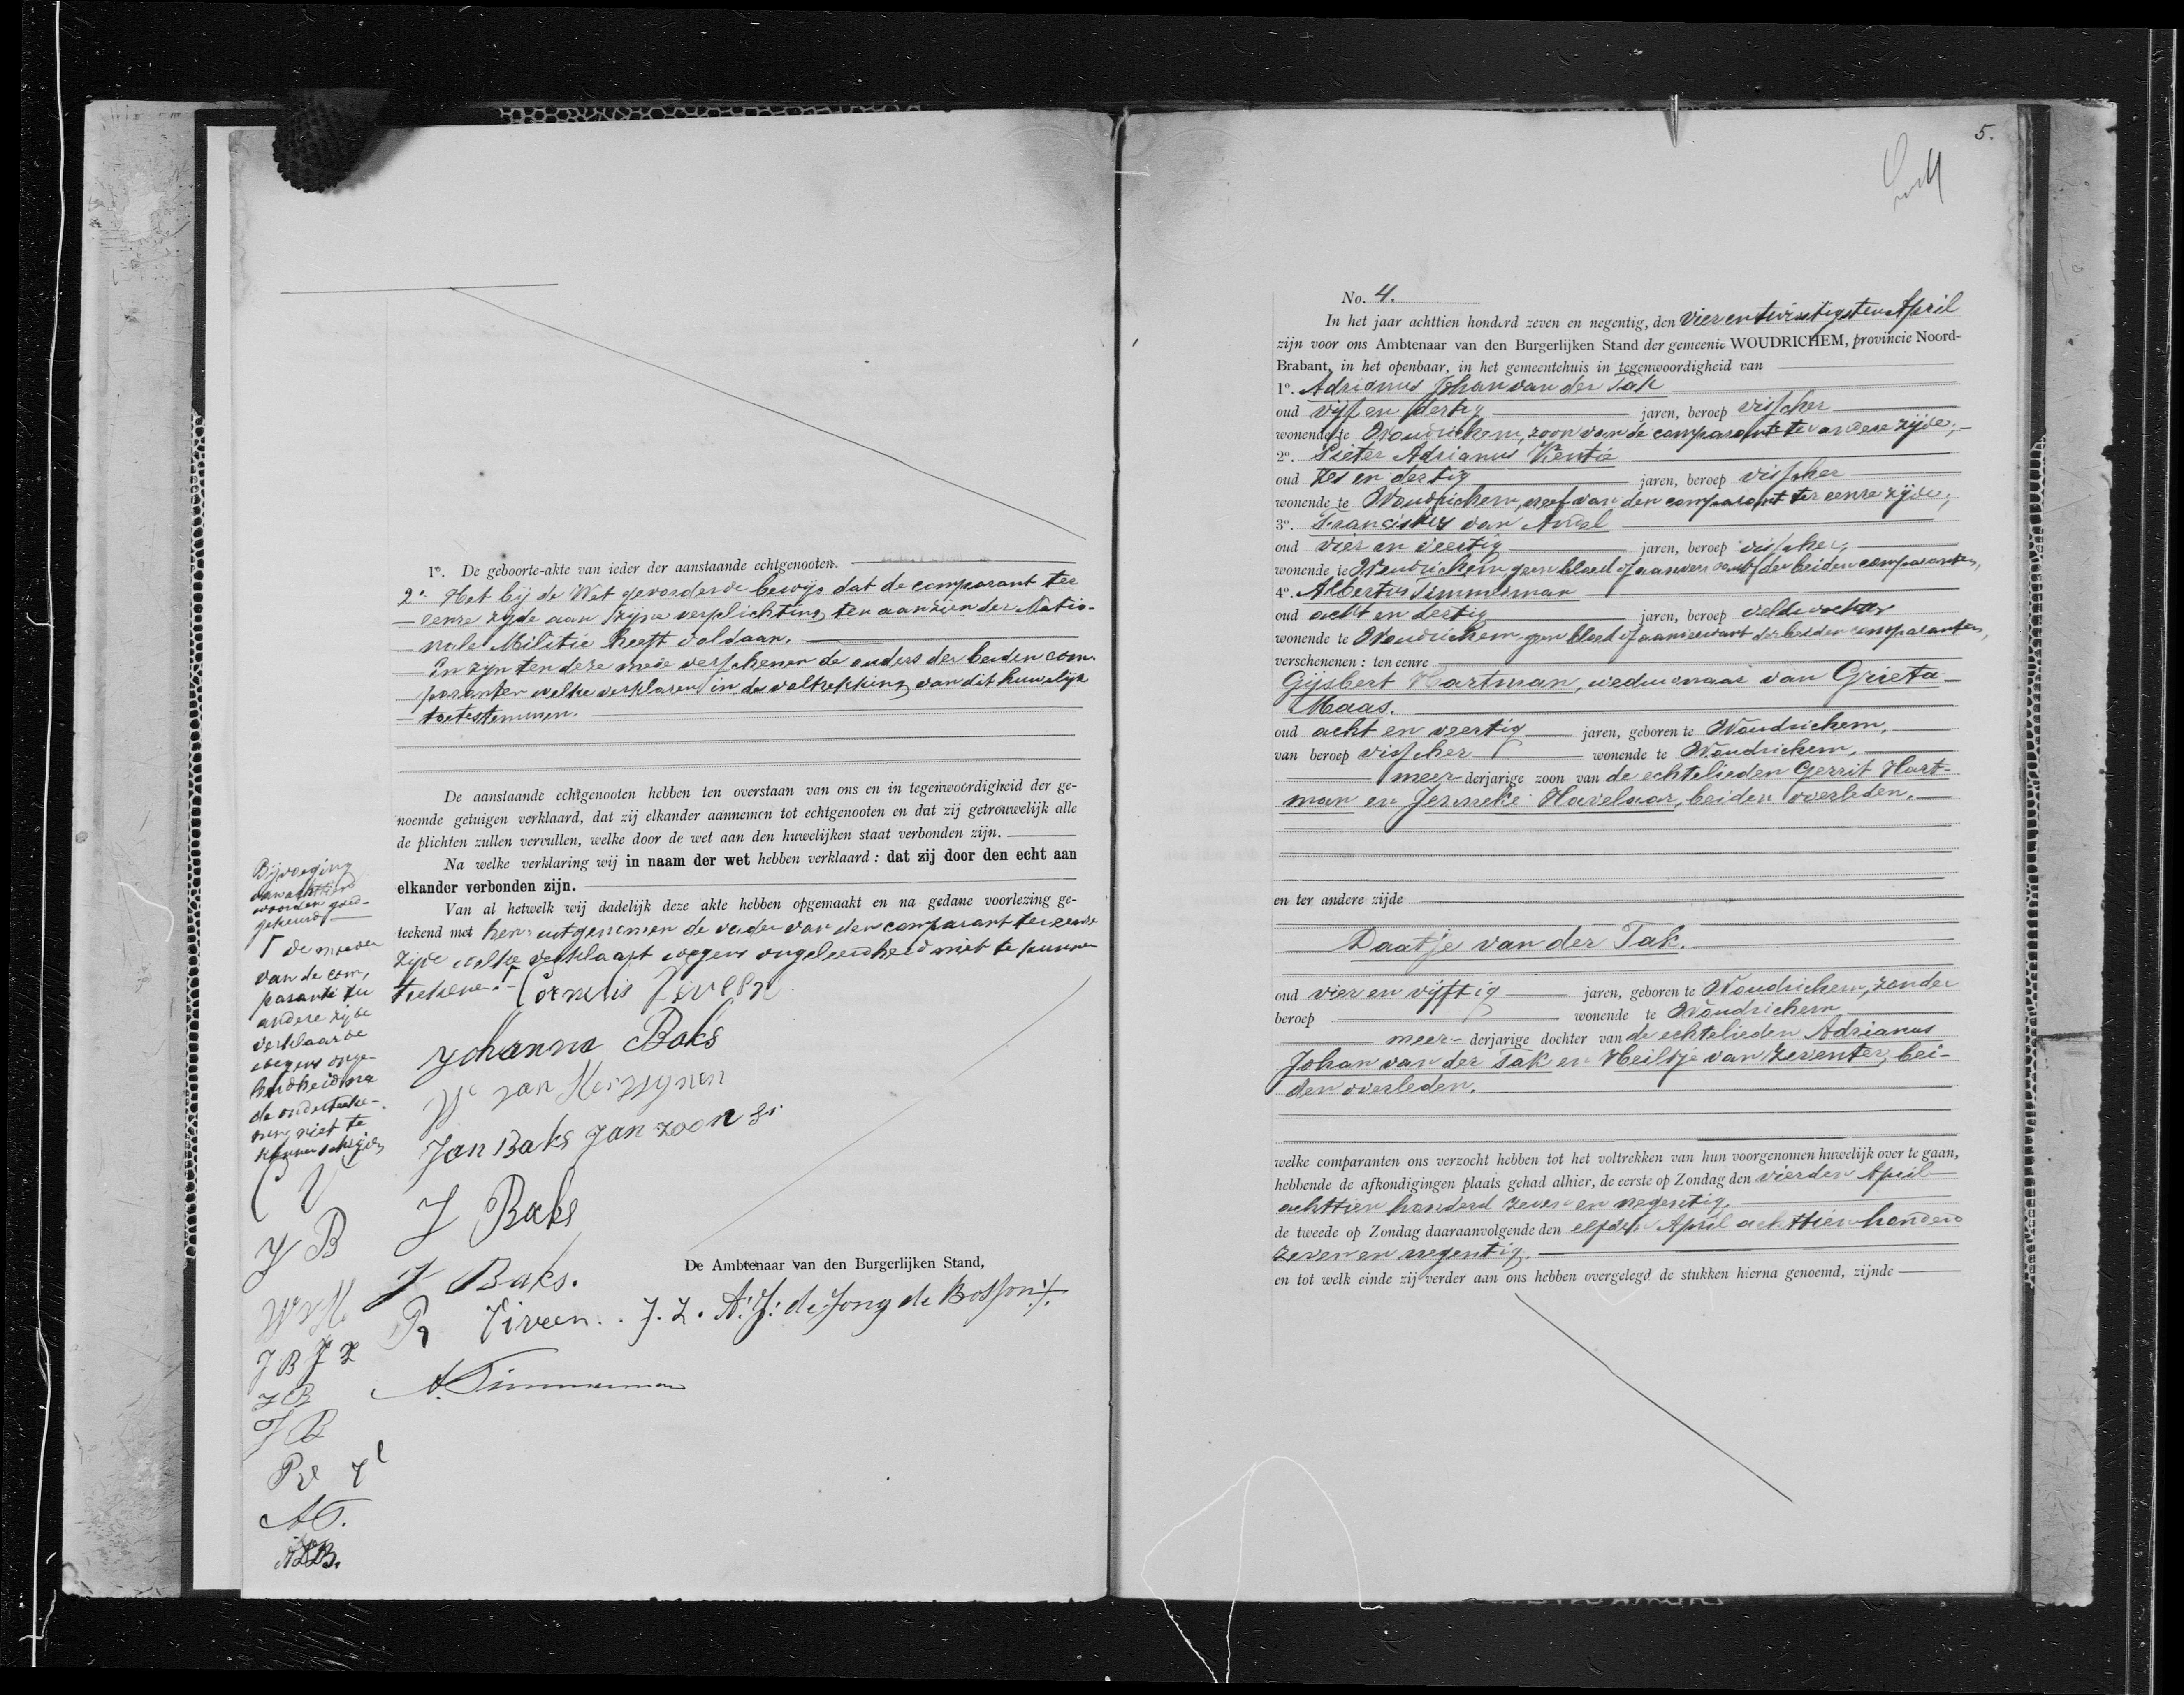 1º. De geboorte-akte van ieder der aanstaande echtgenooten.
2º. Het bij de Wet gevorderde bewijs dat de comparant ter
eenre zijde aan zijne verplichting ten aanzien der Natio-
nale Militie heeft voldaan.
En zijn ten deze mede verschenen de ouders der beiden com-
paranten welke verklaren in de voltrekking van dit huwelijk
toetestemmen.
De aanstaande echtgenooten hebben ten overstaan van ons en in tegenwoordigheid der ge-
noemde getuigen verklaard, dat zij elkander aannemen tot echtgenooten en dat zij getrouwelijk alle
de plichten zullen vervullen, welke door de wet aan den huwelijken staat verbonden zijn.
Na welke verklaring wij in naam der wet hebben verklaard: dat zij door den echt aan
elkander verbonden zijn.
Van al hetwelk wij dadelijk deze akte hebben opgemaakt en na gedane voorlezing ge-
teekend met hen uitgenomen de vader van den comparant ter eenre
zijde welke verklaart wegens ongeleerdheid niet te kunnen
teekenen.
Bijvoeging
van achttien
woorden goed-
gekeurd
de moeder
van de com-
parante ter
andere zijde
verklaarde
wegens onge-
leerdheid na
de onderteeke-
ning niet te
kunnen schrijven
C V
J B
W v H
J B J Z
J B
J B
P V
A T.
Cornelis Viveen
Johanna Baks
W van
Jan Baks Jan zoon
J Baks
J Baks.
P Viveen. J. Z.
A. Timmerman
De Ambtenaar van den Burgerlijken Stand,
A. J. de Jong de Bosson
5.
No. 4.
In het jaar achttien honderd zeven en negentig, den vier en twintigsten April
zijn voor ons Ambtenaar van den Burgerlijken Stand der gemeente WOUDRICHEM, provincie Noord-
Brabant, in het openbaar, in het gemeentehuis in tegenwoordigheid van
1º. Adrianus Johan van der Tak
oud vijf en dertig jaren, beroep visscher
wonende te Woudrichem, zoon van de comparante ter andere zijde;
2º. Pieter Adrianus Kentie
oud zes en dertig jaren, beroep visscher
wonende te Woudrichem, neef van den comparant ter eenre zijde;
3º. Franciskus van Andel
oud vier en veertig jaren, beroep visscher;
wonende te Woudrichem geen bloed of aanverwant der beiden comparanten,
4º. Albertus Timmerman
oud acht en dertig jaren, beroep veldwachter
wonende te Woudrichem geen bloed of aanverwant der beiden comparanten,
verschenenen: ten eenre
Gijsbert Hartman, weduwnaar van Grieta
Maas.
oud acht en veertig jaren, geboren te Woudrichem,
van beroep visscher wonende te Woudrichem,
meer-derjarige zoon van de echtelieden Gerrit Hart-
man en Jenneke Havelaar, beiden overleden.
en ter andere zijde
Daatje van der Tak.
oud vier en vijftig jaren, geboren te Woudrichem, zonder
beroep wonende te Woudrichem
meer-derjarige dochter van de echtelieden Adrianus
Johan van der Tak en Heiltje van Zeventer, bei-
den overleden.
welke comparanten ons verzocht hebben tot het voltrekken van hun voorgenomen huwelijk over te gaan,
hebbende de afkondigingen plaats gehad alhier, de eerste op Zondag den vierden April
achttien honderd zeven en negentig.
de tweede op Zondag daaraanvolgende den elfden April achttien honderd
zeven en negentig.
en tot welk einde zij verder aan ons hebben overgelegd de stukken hierna genoemd, zijnde